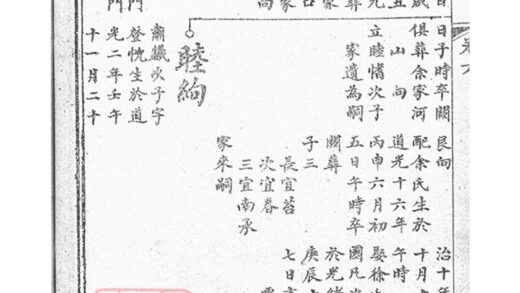 日子時卒關
俱葬余家河
山向
立睦愭次子
家遺為嗣
睦絢
次子字
登恍生於道
光二年壬午
十一月二十
艮向
配余氏生於
道光十六年
丙申六月初
五日午時卒
關葬
子三
長宜苔
次宜春
三宜南承
家來嗣
治十年
十月
午時
娶徐
國
於光緒
庚辰
七日